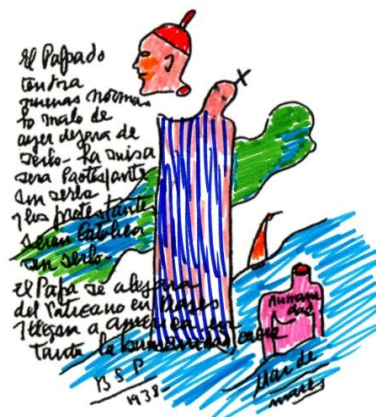 El Papado
tendra
nuevas normas
lo malo de
ayer dejara de
serlo - La misa
sera Protestante
sin serlo
y los protestantes
seran catolicos
sin serlo.
El Papa se alejara
del Vaticano en
y llegara a America
tanto la humanidad caera
B S P
1938.
Humani
dad
Mar de
mares